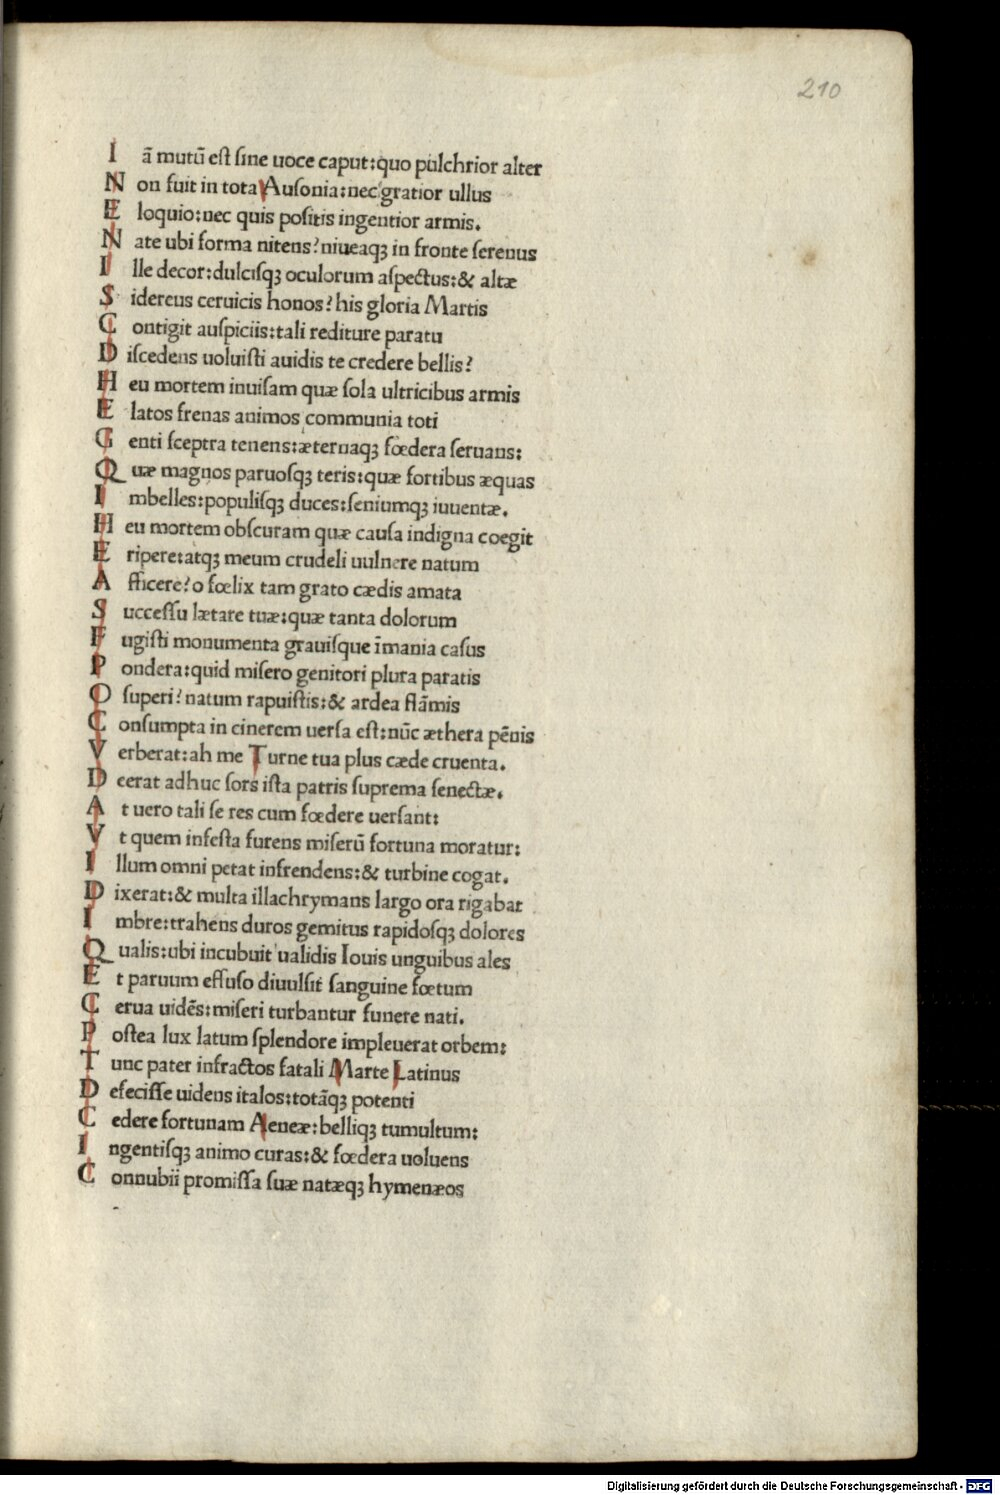 210
Iã mutũ est sine uoce caput:quo pulchrior alter
Non fuit in tota Ausonia:nec gratior ullus
Eloquio:nec quis positis ingentior armis.
Nate ubi forma nitens?niueaqꝫ in fronte serenus
Ille decor:dulcisqꝫ oculorum aspectus:& altæ
Sidereus ceruicis honos?his gloria Martis
Contigit auspiciis:tali rediture paratu
Discedens uoluisti auidis te credere bellis?
Heu mortem inuisam quæ sola ultricibus armis
Elatos frenas animos communia toti
Genti sceptra tenens:æternaqꝫ fœdera seruans:
Quæ magnos paruosqꝫ teris:quæ fortibus æquas
Imbelles:populisqꝫ duces:seniumqꝫ iuuentæ.
Heu mortem obscuram quæ causa indigna coegit
Eripere:atqꝫ meum crudeli uulnere natum
Afficere?o fœlix tam grato cædis amata
Successu lætare tuæ:quæ tanta dolorum
Fugisti monumenta grauisque ĩmania casus
Pondera:quid misero genitori plura paratis
O superi?natum rapuistis:& ardea flãmis
Consumpta in cinerem uersa est:nũc æthera pẽnis
Verberat:ah me Turne tua plus cæde cruenta.
Deerat adhuc sors ista patris suprema senectæ.
At uero tali se res cum fœdere uersant:
Vt quem infesta furens miserũ fortuna moratur:
Illum omni petat infrendens:& turbine cogat.
Dixerat:& multa illachrymans largo ora rigabat
Imbre:trahens duros gemitus rapidosqꝫ dolores
Qualis:ubi incubuit ualidis Iouis unguibus ales
Et paruum effuso diuulsit sanguine fœtum
Cerua uidẽs:miseri turbantur funere nati.
Postea lux latum splendore impleuerat orbem:
Tunc pater infractos fatali Marte Latinus
Defecisse uidens italos:totãqꝫ potenti
Cedere fortunam Aeneæ:belliqꝫ tumultum:
Ingentisqꝫ animo curas:& fœdera uoluens
Connubii promissa suæ natæqꝫ hymenæos
Digitalisierung gefördert durch die Deutsche Forschungsgemeinschaft - DFG